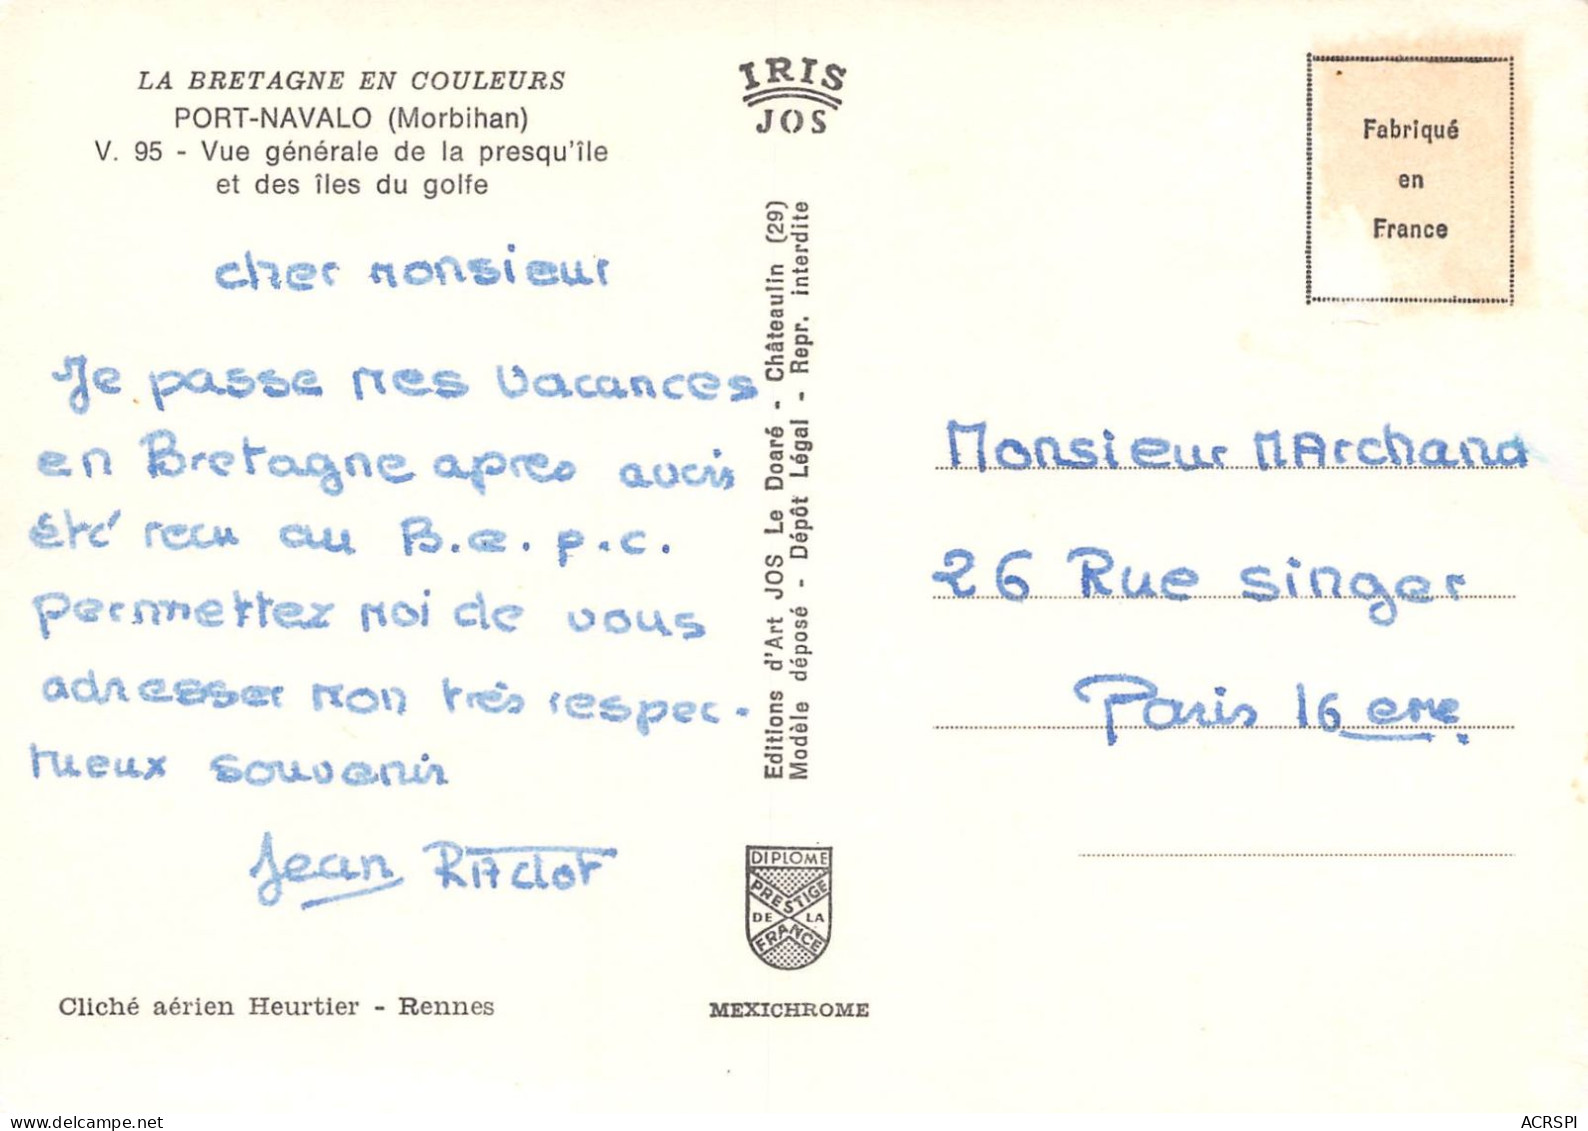 LA BRETAGNE EN COULEURS
PORT-NAVALO (Morbihan)
V. 95 - Vue générale de la presqu'île
et des îles du golfe
cher monsieur
Je passe mes vacances
en Bretagne apres avoir
été recu au B.e.p.c.
permettez moi de vous
adresser mon très respec-
tueux souvenir
Jean
Cliché aérien Heurtier - Rennes
IRIS
JOS
Editions d'Art JOS Le Doaré - Châteaulin (29)
Modèle déposé - Dépôt Légal - Repr. interdite
DIPLOME
PRESTIGE
DE LA
FRANCE
MEXICHROME
Fabriqué
en
France
Monsieur MArchand
26 Rue singer
Paris 16 eme.
ACRSPI